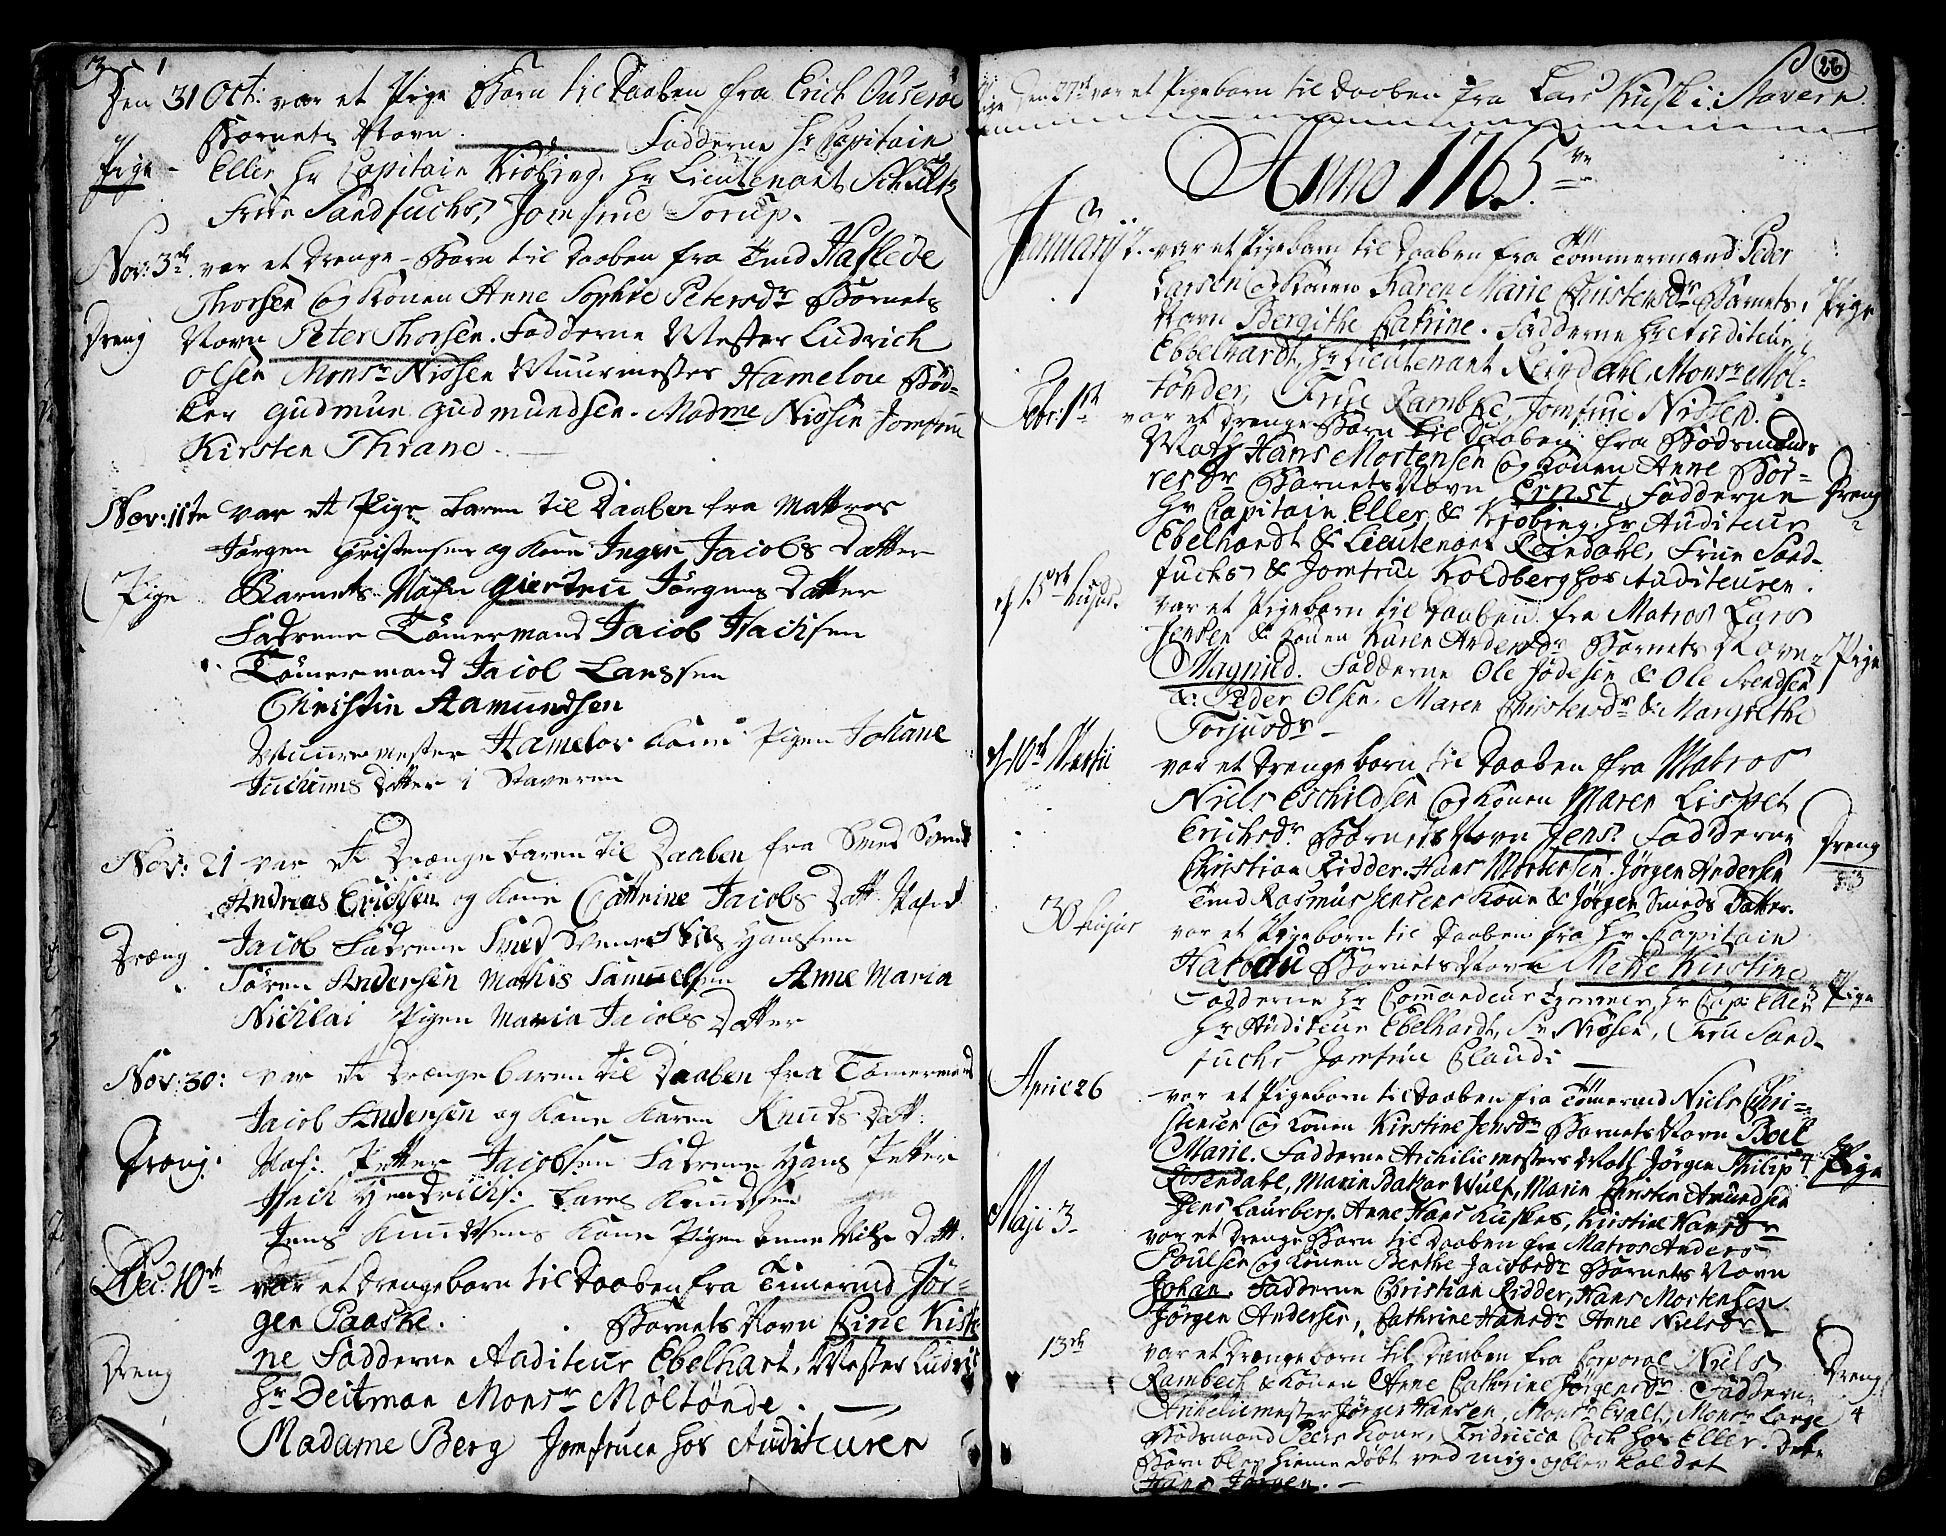 Den 31 Oct: var et Pige Barn til Daaben fra Erich
Barnets Navn Fadderne Hr Capitain
Pige
Eller Hr Capitain Kiøbing, Hr Lieutenant Schultz
Frue Sandfuchs, Jomfrue Torup.
Nov: 3de var et Drenge-Barn til Daaben fra Tmd
Thorsen og Konen Anne Sophie Petersdr Barnets
Dreng
Navn Peter Thorsen. Fadderne Mester Ludvich
Olsen Monsr Nissen Muurmester Hamelou Bød-
ker Gudmun Gudmundsen. Madme Nissen Jomfrue
Kirsten Thrane.
Nov: 11te var et Pige baren til Daaben fra Mattros
Jørgen Christensen og Kone Inger Jacobs Datter
Pige
Barnets Nafn Giertru Jørgens Datter
Fadrene Tømermand Jacob Isachsen
Tømermand Jacob Larssen
Christin Aamundsen
Muuremester Hamelov Kone Pigen Johane
Datter i Staveren
Nov: 21 var et Drænge baren til Daaben fra Smed
Andreas Erichsen og Kone Cattrine Jacobs Datt. Nafnet
Dræng
Jacob Fadrene Smed Niels Hanssen
Søren Andersen Mathis Samuelsen Anne Maria
Nichlai Pigen Maria Jacobs Datter
Nov: 30: var et Drænge baren til Daaben fra Tømermand
Jacob Andersen og Kone Karen Knuds Datt.
Dræng.
Nafn: Petter Jacobsen Fadrene Hans Petter
Isach Hendrichs: Lars Knudsen
Jens Knudsens Kone Pigen Anne Nils Datt.
Dec: 10de var et Drengebarn til Daaben fra Timermd Jør-
gen Paaske. Barnets Navn Kisti-
Dreng
ne Fadderne Auditeur Ebelhart, Mester Ludvig
Hr Deitman Monsr Moltönde.
Madame Berg Jomfruen hos Auditeuren
26
Pige Den 27de var et Pigebarn til Daaben fra Lars Kusk i Stavern.
Anno 1765.
January 2. var et Pigebarn til Daaben fra Tömmermand Peder
Larsen og Konen Karen Marie Christensdr Barnets
Pige
Navn Bergithe Catrine. Fadderne Hr Auditeur
Ebbelhardt, Hr Lieutenant Reindahl, Monsr Mol-
tønder, Frue Lambke, Jomfrue Nissen.
Febr: 1te var et Drenge Barn til Daaben fra Bødsmands
Math Hans Mortensen og Konen Anne Bør-
resdr Barnets Navn Ernst. Fadderne
Dreng
Hr Capitain Eller & Kiøbing, Hr Auditeur
Ebelhardt & Lieutenant Reindahl, Frue Sand-
fuchs & Jomfrue Koldberg hos Auditeuren.
d 15de hujus. var et Pigebarn til Daaben fra Matros Lars
Jensen & Konen Karen Andersdr Barnets Navn
Pige
Magnild. Fadderne Ole & Ole Svendsen
& Peder Olsen, Maren Christensdr & Margrethe
Torjusdr
d 10de Martii var et Drengebarn til Daaben fra Matros
Niels Eschildsen og Konen Maren Lispet
Erichsdr Barnets Navn Jens. Fadderne
Dreng
Christian Ridder, Hans Mortensen, Jørgen Andersen
Tmd Rasmus Jensens Kone & Jørgen Smeds Datter.
30 hujus var et Pigebarn til Daaben fra Hr Capitain
Barnets Navn Mette Kirstine
Pige
Fadderne Hr Commandeur Hr Cap: Eller
Hr Auditeur Ebelhardt, Sr Nissen, Fru Sand-
fuchs Jomfrue Claudi
April 26 var et Pigebarn til Daaben fra Tømermd Niels Chri-
stensen og Konen Kirstine Jensdr Barnets Navn Boel
Marie. Fadderne Archelimesters Math Jørgen Philip
Pige
Rosendahl, Marin Wulf, Maren Christin Amundsen
Jens Laurberg, Anne Hans Kuskes, Kirstine Hansdr
Maji 3 var et Drenge Barn til Daaben fra Matros Anders
Poulsen og Konen Berthe Jacobsdr Barnets Navn
Johan. Fadderne Christian Ridder, Hans Mortensen
Jørgen Andersen, Cathrine Hansdr Anne Nielsdr
13de var et Drengebarn til Daaben fra Corporal Niels
Rambech & Konen Anne Cathrine Jørgensdr. Faddern
Dreng
4
Arkelimester Jørgen Hansen, Monsr Evalt, Monsr Lange
Bødsmand Peers Kone, Fridricca Cock hos Eller. Dette
Barn blev hieme døbt ved mig. og blev kaldet
Hans Jørgen.